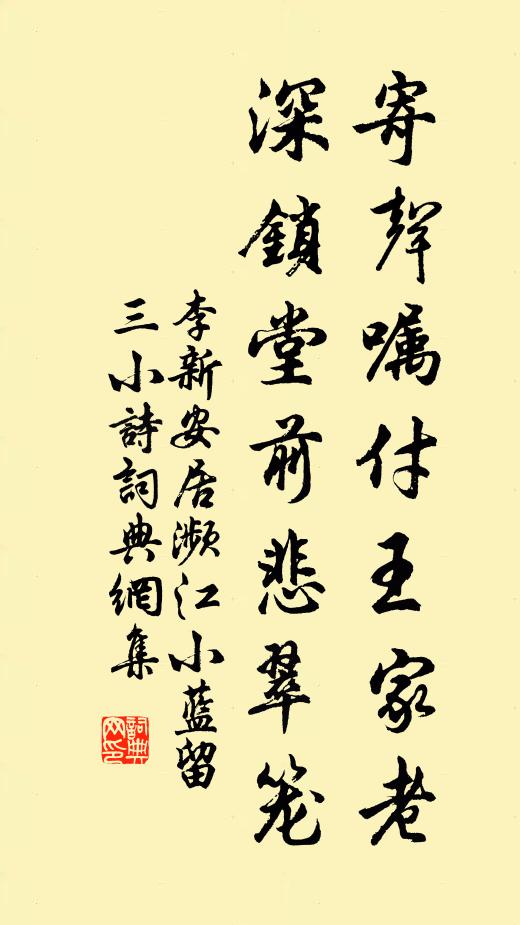 寄聲嘱付王家老
深鎖堂前悲翠笼
李新安居瀕江小藍留
三小詩詞典網集
詞典
网印